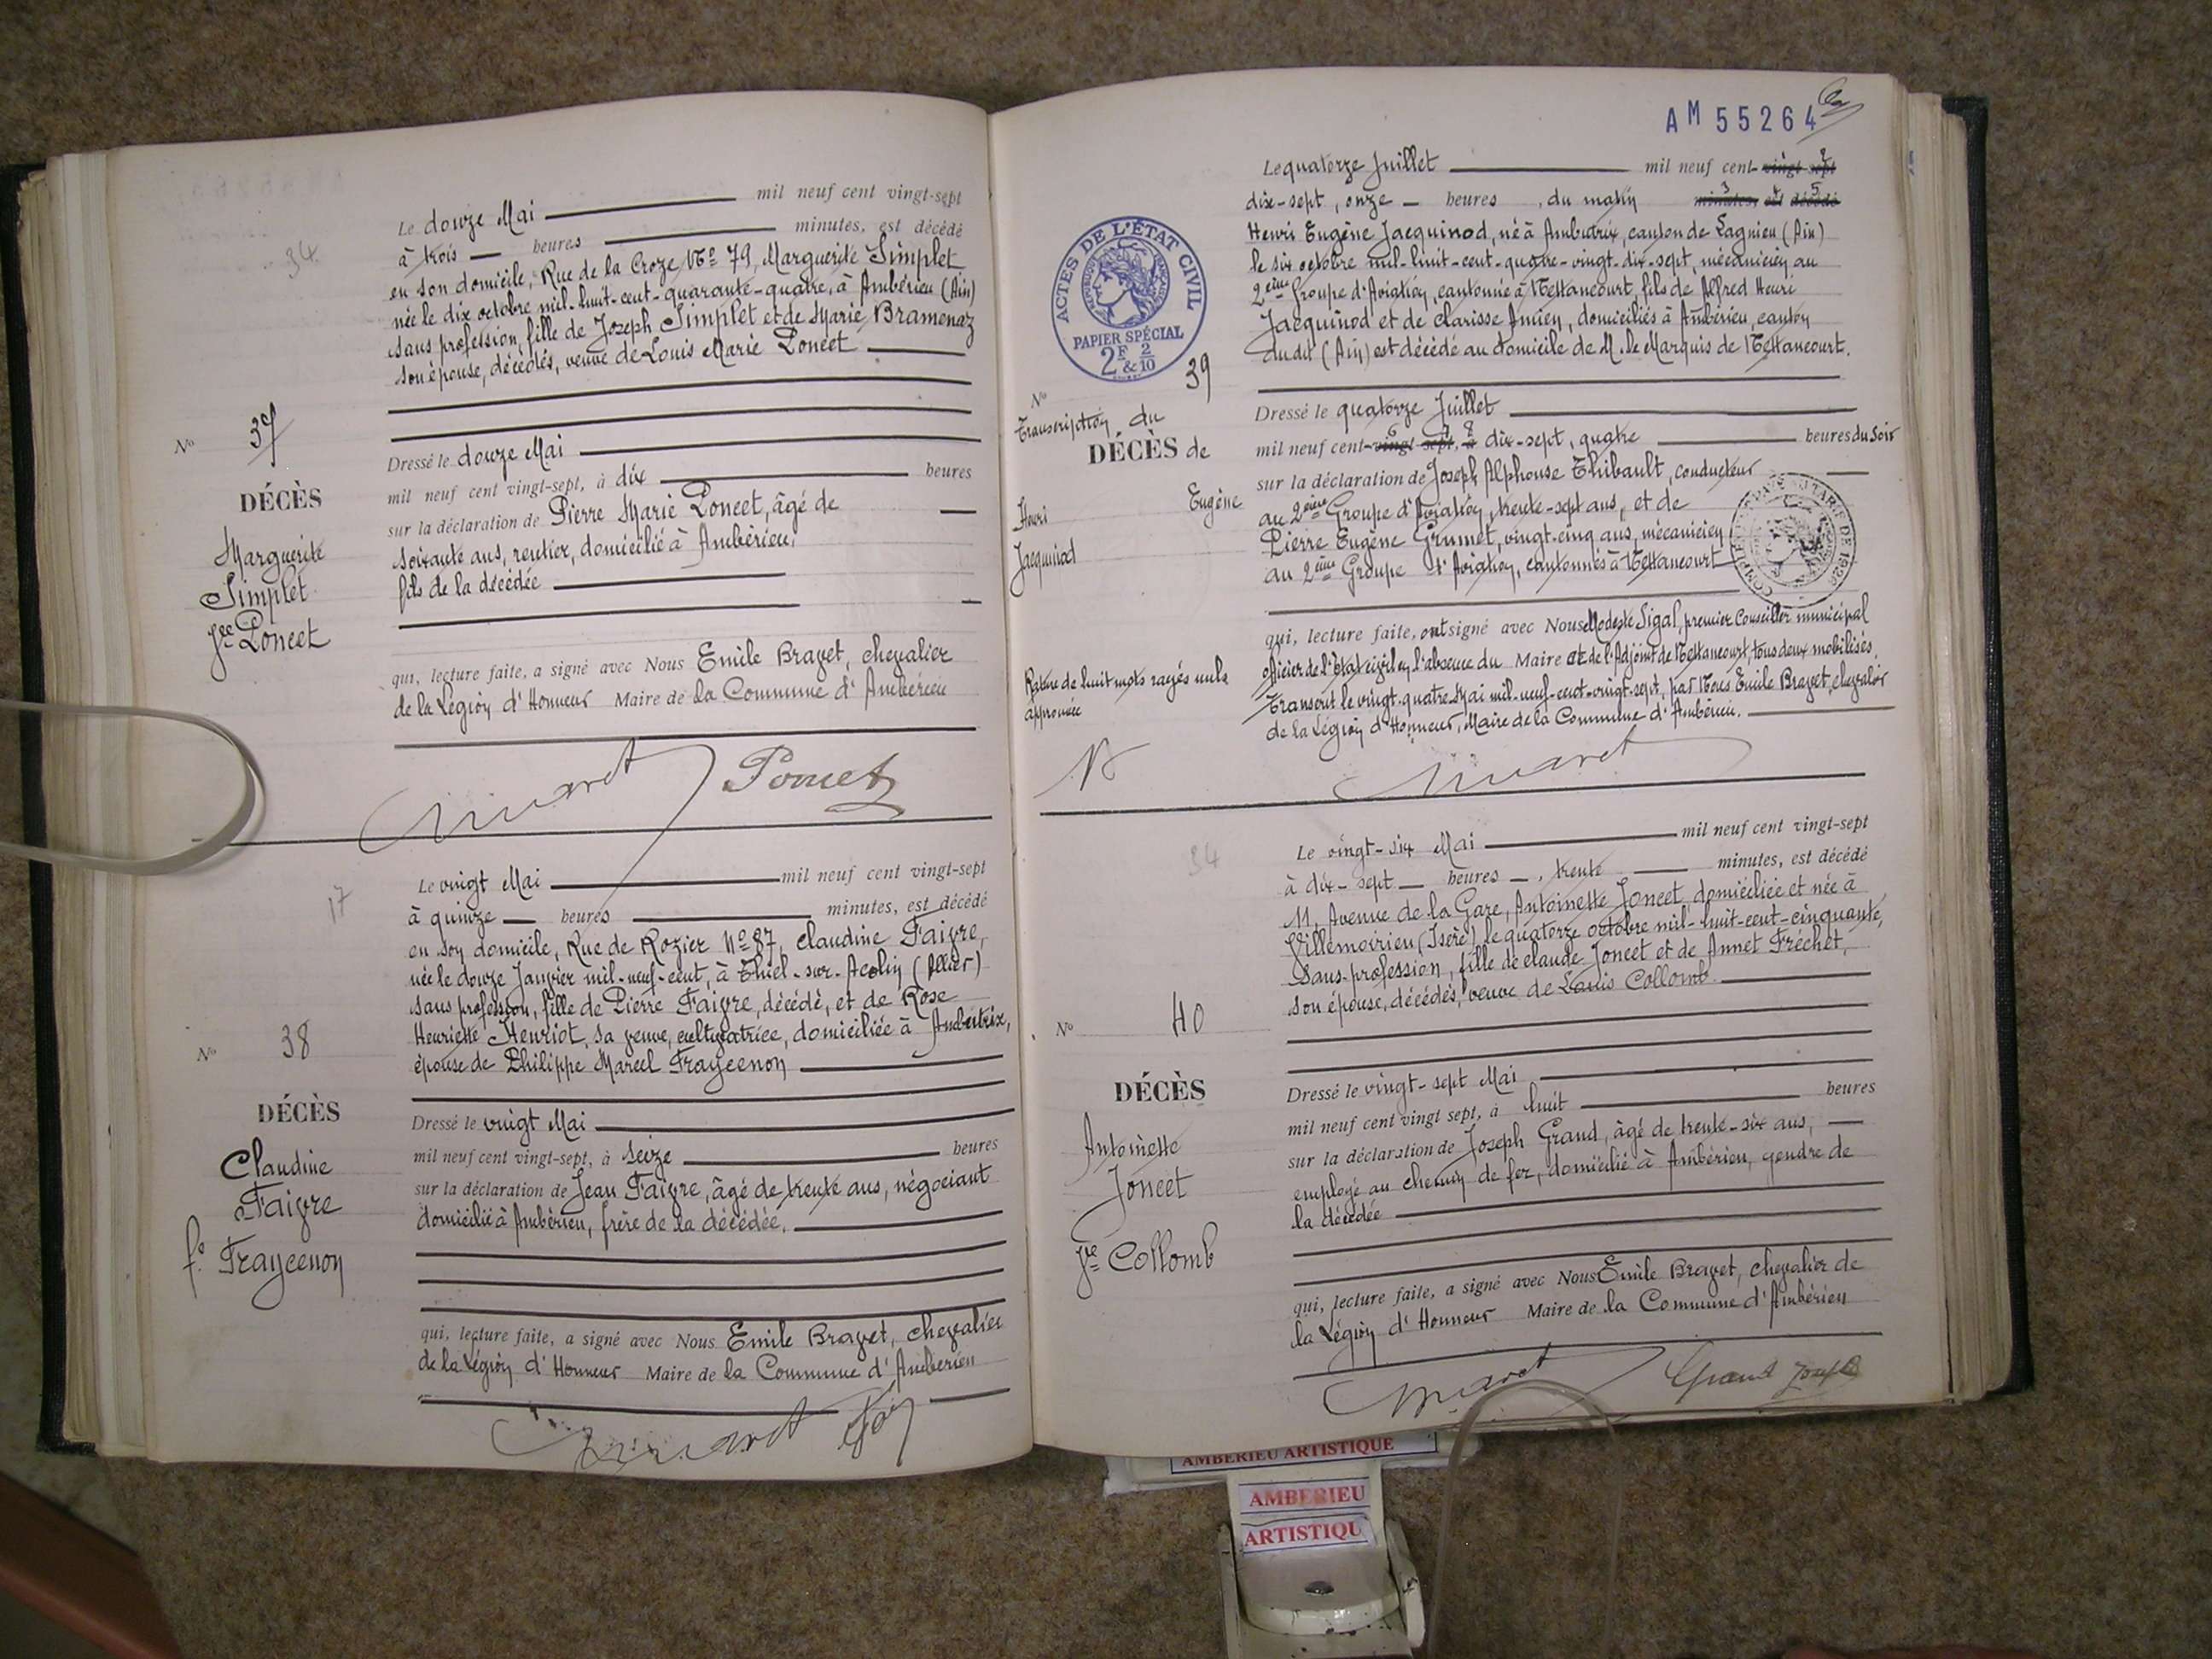 34
Le douze Mai mil neuf cent vingt-sept
à trois heures minutes, est décédé
en son domicile, Rue de la Croze, No 79, Marguerite Simplet
née le dix octobre mil-huit-cent-quarante-quatre, à Ambérieu (Ain)
sans profession, fille de Joseph Simplet et de Marie Bramenaz
son épouse, décédés, veuve de Louis Marie Poncet
No 37
DÉCÈS
Marguerite
Simplet
Vve Poncet
Dressé le douze Mai
mil neuf cent vingt-sept, à dix heures
sur la déclaration de Pierre Marie Poncet, âgé de
soixante ans, rentier, domicilié à Ambérieu,
fils de la décédée
qui, lecture faite, a signé avec Nous Emile Bravet, chevalier
de la Légion d'Honneur Maire de la Commune d'Ambérieu
Poncet
17
Le vingt Mai mil neuf cent vingt-sept
à quinze heures minutes, est décédé
en son domicile, Rue de Rozier No 87, Claudine Faivre,
née le douze Janvier mil-neuf-cent, à Thiel-sur-Acolin (Allier)
sans profession, fille de Pierre Faivre, décédé, et de Rose
Henriette Henriot, sa veuve, cultivatrice, domiciliée à Ambutrix,
épouse de Philippe Marcel Fraycenon
No 38
DÉCÈS
Claudine
Faivre
fe Fraycenon
Dressé le vingt Mai
mil neuf cent vingt-sept, à seize heures
sur la déclaration de Jean Faivre, âgé de trente ans, négociant
domicilié à Ambérieu, frère de la décédée.
qui, lecture faite, a signé avec Nous Emile Bravet, chevalier
de la Légion d'Honneur Maire de la Commune d'Ambérieu
AM 55264
Le quatorze Juillet mil neuf cent vingt sept
dix-sept, onze heures, du matin minutes, est décédé
Henri Eugène Jacquinod, né à Ambutrix, canton de Lagnieu (Ain)
le six octobre mil-huit-cent-quatre-vingt-dix-sept, mécanicien au
2ème Groupe d'Aviation, cantonné à Nettancourt, fils de Alfred Henri
Jacquinod et de Clarisse Anciey, domiciliés à Ambérieu, canton
dudit (Ain) est décédé au domicile de M. le Marquis de Nettancourt.
ACTES DE L'ÉTAT CIVIL
RÉPUBLIQUE FRANÇAISE
PAPIER SPÉCIAL
2F & 2/10
No 39
Transcription du
DÉCÈS de
Henri Eugène
Jacquinod
Dressé le quatorze Juillet
mil neuf cent vingt sept, à dix-sept, quatre heures du soir
sur la déclaration de Joseph Alphonse Thibault, conducteur
au 2ème Groupe d'Aviation, trente-sept ans, et de
Pierre Eugène Grumet, vingt-cinq ans, mécanicien
au 2ème Groupe d'Aviation, cantonnés à Nettancourt
qui, lecture faite, ont signé avec Nous Modeste Sigal, premier Conseiller municipal
officier de l'état civil en l'absence du Maire et de l'Adjoint de Nettancourt, tous deux mobilisés.
Transcrit le vingt-quatre Mai mil-neuf-cent-vingt-sept, par Nous Emile Bravet, chevalier
de la Légion d'Honneur, Maire de la Commune d'Ambérieu.
Rature de huit mots rayés nuls
approuvée
34
Le vingt-six Mai mil neuf cent vingt-sept
à dix-sept heures, trente minutes, est décédé
11, Avenue de la Gare, Antoinette Joncet, domiciliée et née à
Villemoirieu (Isère) le quatorze octobre mil-huit-cent-cinquante,
sans-profession, fille de Claude Joncet et de Annet Fréchet,
son épouse, décédés, veuve de Louis Collomb.
No 40
DÉCÈS
Antoinette
Joncet
Vve Collomb
Dressé le vingt-sept Mai
mil neuf cent vingt sept, à huit heures
sur la déclaration de Joseph Grand, âgé de trente-six ans,
employé au chemin de fer, domicilié à Ambérieu, gendre de
la décédée
qui, lecture faite, a signé avec Nous Emile Bravet, chevalier de
la Légion d'Honneur Maire de la Commune d'Ambérieu
Grand Joseph
AMBERIEU ARTISTIQUE
AMBERIEU
ARTISTIQU